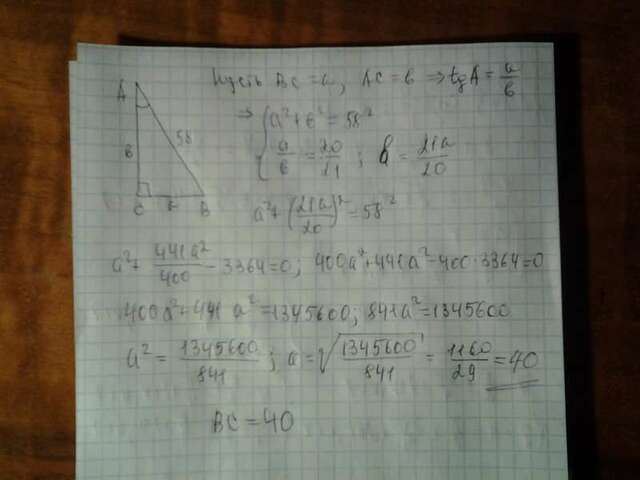 Пусть BC = a, AC = b ⇒ tg A = a/b
A
в
58
C
B
⇒ { a² + b² = 58²
a/b = 20/21 ; b = 21a/20
a² + (21a/20)² = 58²
a² + 441a²/400 - 3364 = 0; 400a² + 441a² - 400·3364 = 0
400a² + 441a² = 1345600; 841a² = 1345600
a² = 1345600/841 ; a = √(1345600/841) = 1160/29 = 40
BC = 40